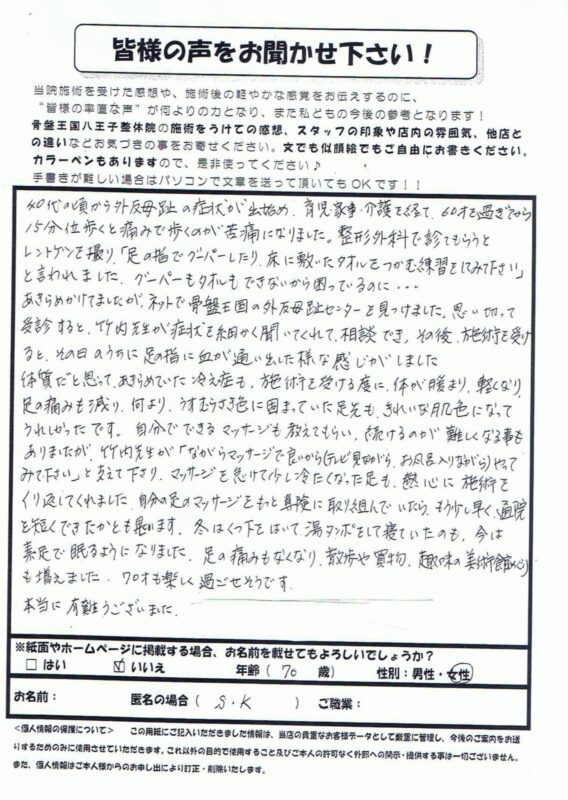 皆様の声をお聞かせ下さい！
当院施術を受けた感想や、施術後の軽やかな感覚をお伝えするのに、
“皆様の率直な声”が何よりの力となり、また私どもの今後の参考となります！
骨盤王国八王子整体院の施術をうけての感想、スタッフの印象や店内の雰囲気、他店と
の違いなどお気づきの事をお寄せください。文でも似顔絵でもご自由にお書きください。
カラーペンもありますので、是非使ってください♪
手書きが難しい場合はパソコンで文章を送って頂いてもOKです！！
40代の頃から外反母趾の症状が出始め、育児家事・介護を経て、60才を過ぎてから
15分位歩くと痛みで歩くのが苦痛になりました。整形外科で診てもらうと
レントゲンを撮り、「足の指でグーパーしたり、床に敷いたタオルをつかむ練習をしてみて下さい」
と言われました。グーパーもタオルもできないから困っているのに・・・
あきらめかけてましたが、ネットで骨盤王国の外反母趾センターを見つけました。思い切って
受診すると、竹内先生が症状を細かく聞いてくれて、相談でき、その後、施術を受け
ると、その日のうちに足の指に血が通い出した様な感じがしました
体質だと思って、あきらめていた冷え症も、施術を受ける度に、体が暖まり、軽くなり、
足の痛みも減り、何より、うすむらさき色に固まっていた足先も、きれいな肌色になって
うれしかったです。自分でできるマッサージも教えてもらい、続けるのが難しくなる事も
ありましたが、竹内先生が「ながらマッサージで良いから（テレビ見ながら、お風呂入りながら）やって
みて下さい」と支えて下さり、マッサージを怠けて少し冷たくなった足も、熱心に施術を
くり返してくれました。自分の足のマッサージをもっと真険に取り組んでいたら、もう少し早く、通院
を短くできたかとも思います。冬はくつ下をはいて湯タンポをして寝ていたのも、今は
素足で眠るようになりました。足の痛みもなくなり、散歩や買物、趣味の美術館めぐり
も増えました。70才も楽しく過ごせそうです。
本当に有難うございました。
※紙面やホームページに掲載する場合、お名前を載せてもよろしいでしょうか？
□はい ☑いいえ 年齢（70 歳） 性別：男性・女性
お名前： 匿名の場合（ S・K ） ご職業：
＜個人情報の保護について＞ この用紙にご記入いただきました情報は、当店の貴重なお客様データとして厳重に管理し、今後のご案内をお送
りするためのみに使用させていただきます。これ以外の目的で使用すること及びご本人の許可なく外部への開示・提供する事は一切ございません。
また、個人情報はご本人様からのお申し出により訂正・削除いたします。